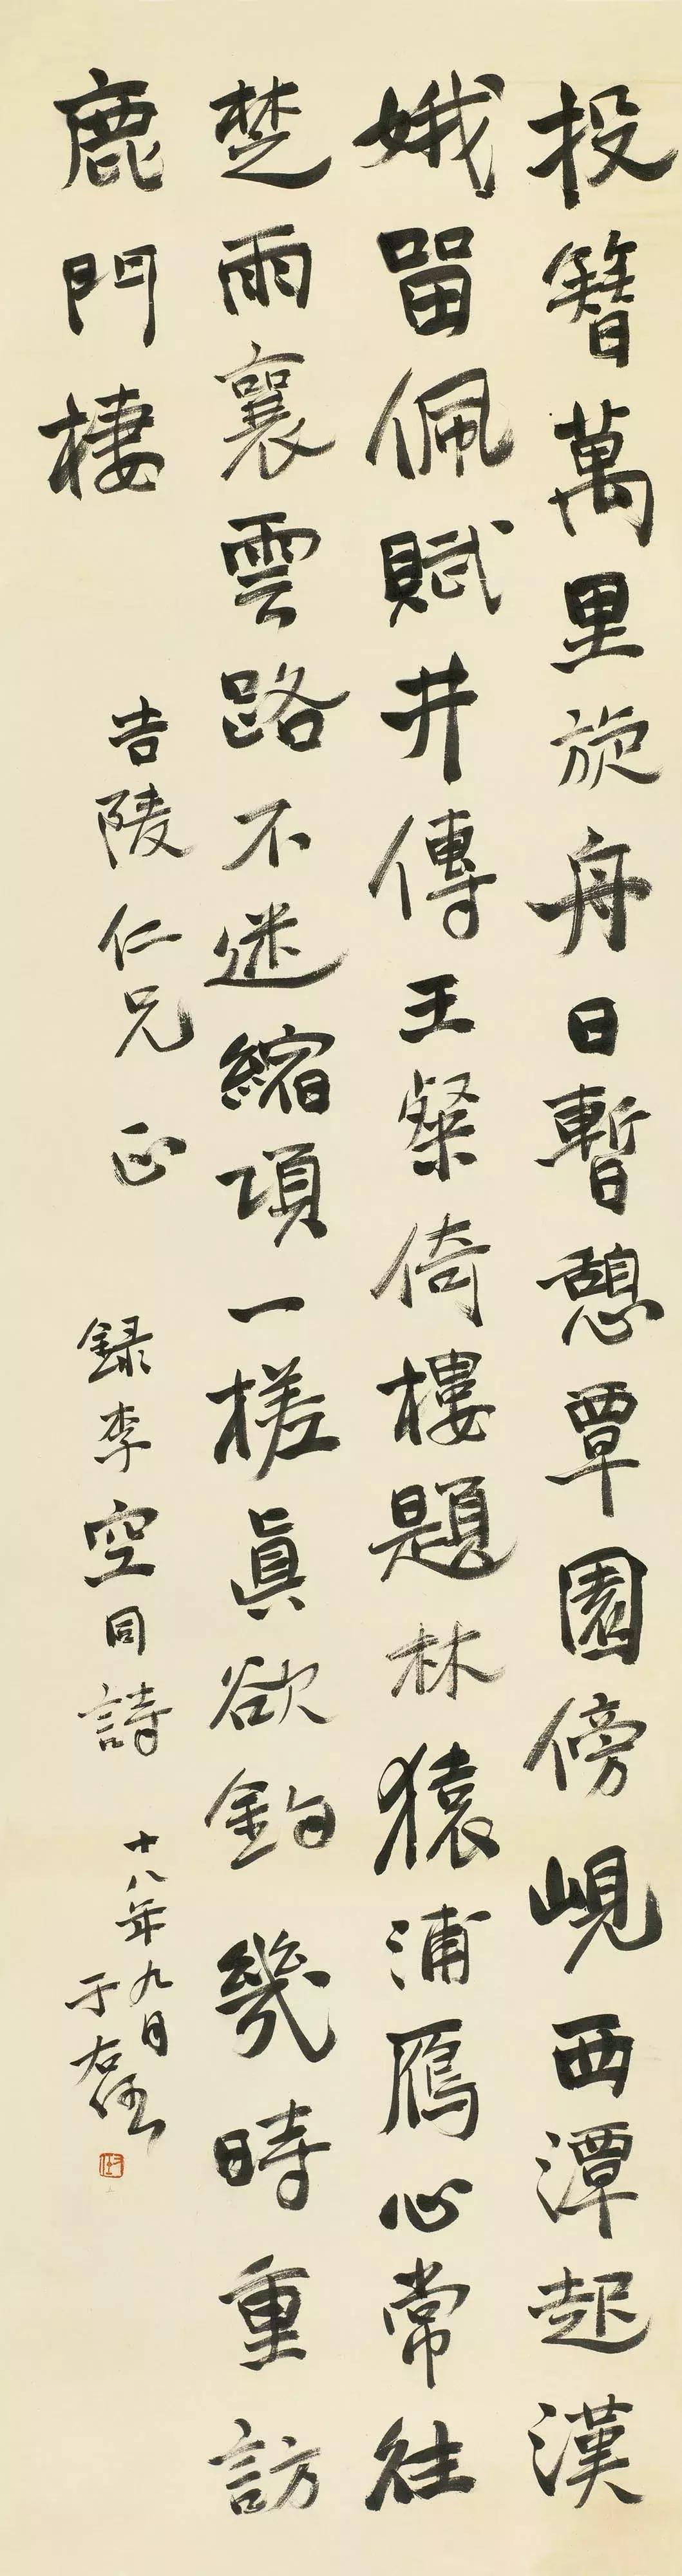 投簪萬里旋舟日暫憩覃園傍峴西潭起漢
娥留佩賦井傳王粲倚樓題林猿浦鴈心常往
楚雨襄雲路不迷縮項一槎眞欲釣幾時重訪
鹿門棲
吉陵仁兄 正
録李空同詩
十八年九月
于右任